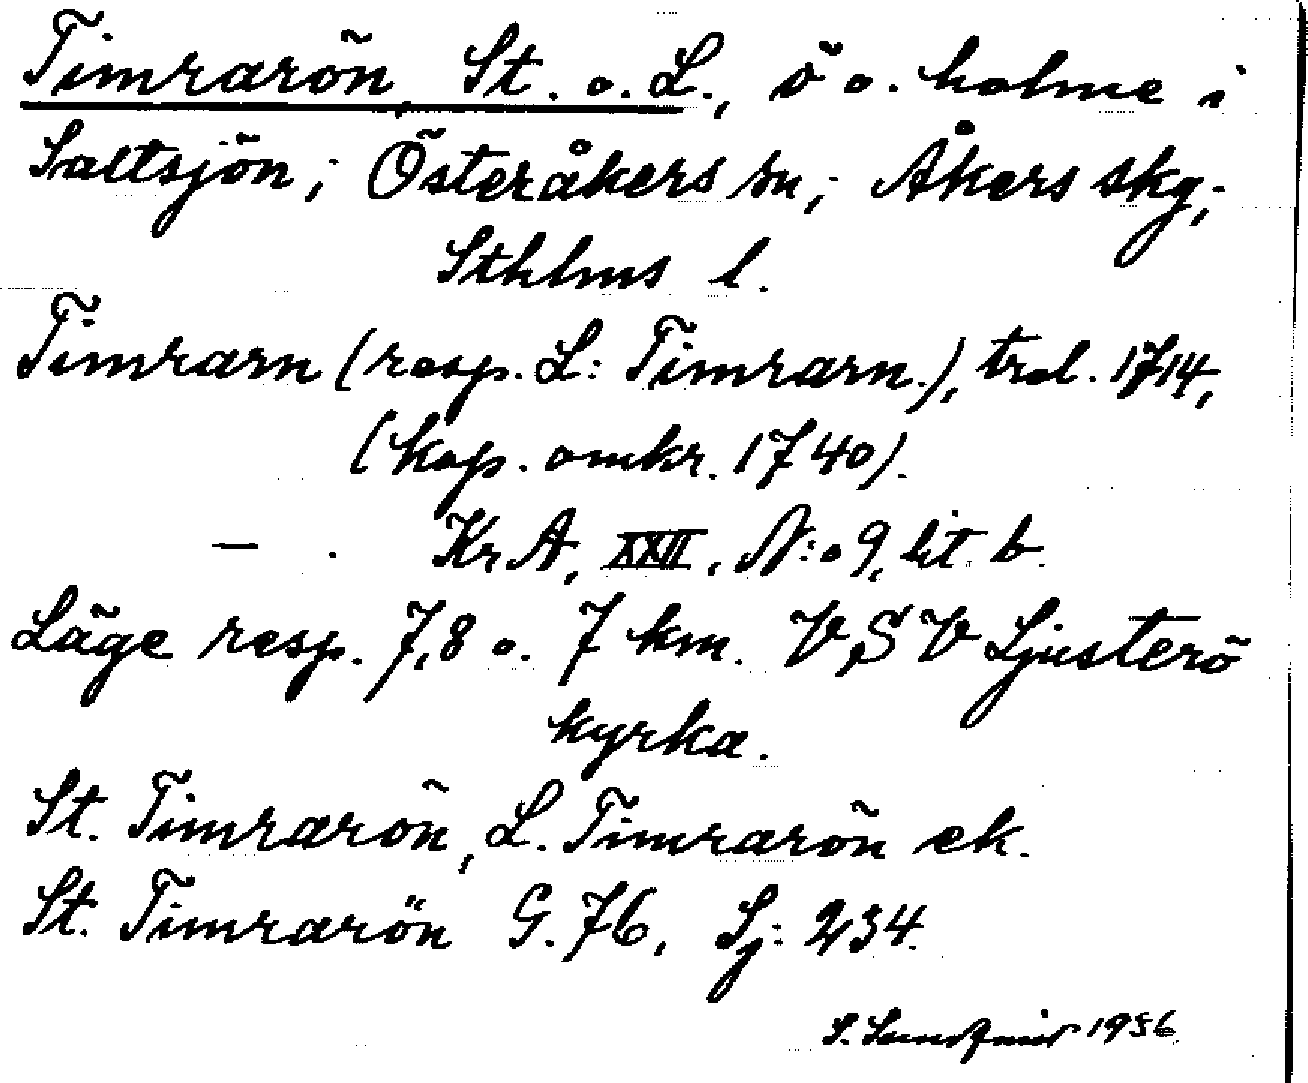 Timrarön, St. o. L., ö o. holme i
Saltsjön; Österåkers sn; Åkers skg;
Sthlms l.
Timrarn (resp. L: Timrarn.), trol. 1714,
(kop. omkr. 1740).
— . KrA, XXII, N:o 9, lit. b.
Läge resp. 7,8 o. 7 km. V,SV Ljusterö
kyrka.
St. Timrarön, L. Timrarön ek.
St. Timrarön G. 76, Sj: 234.
S. 1956